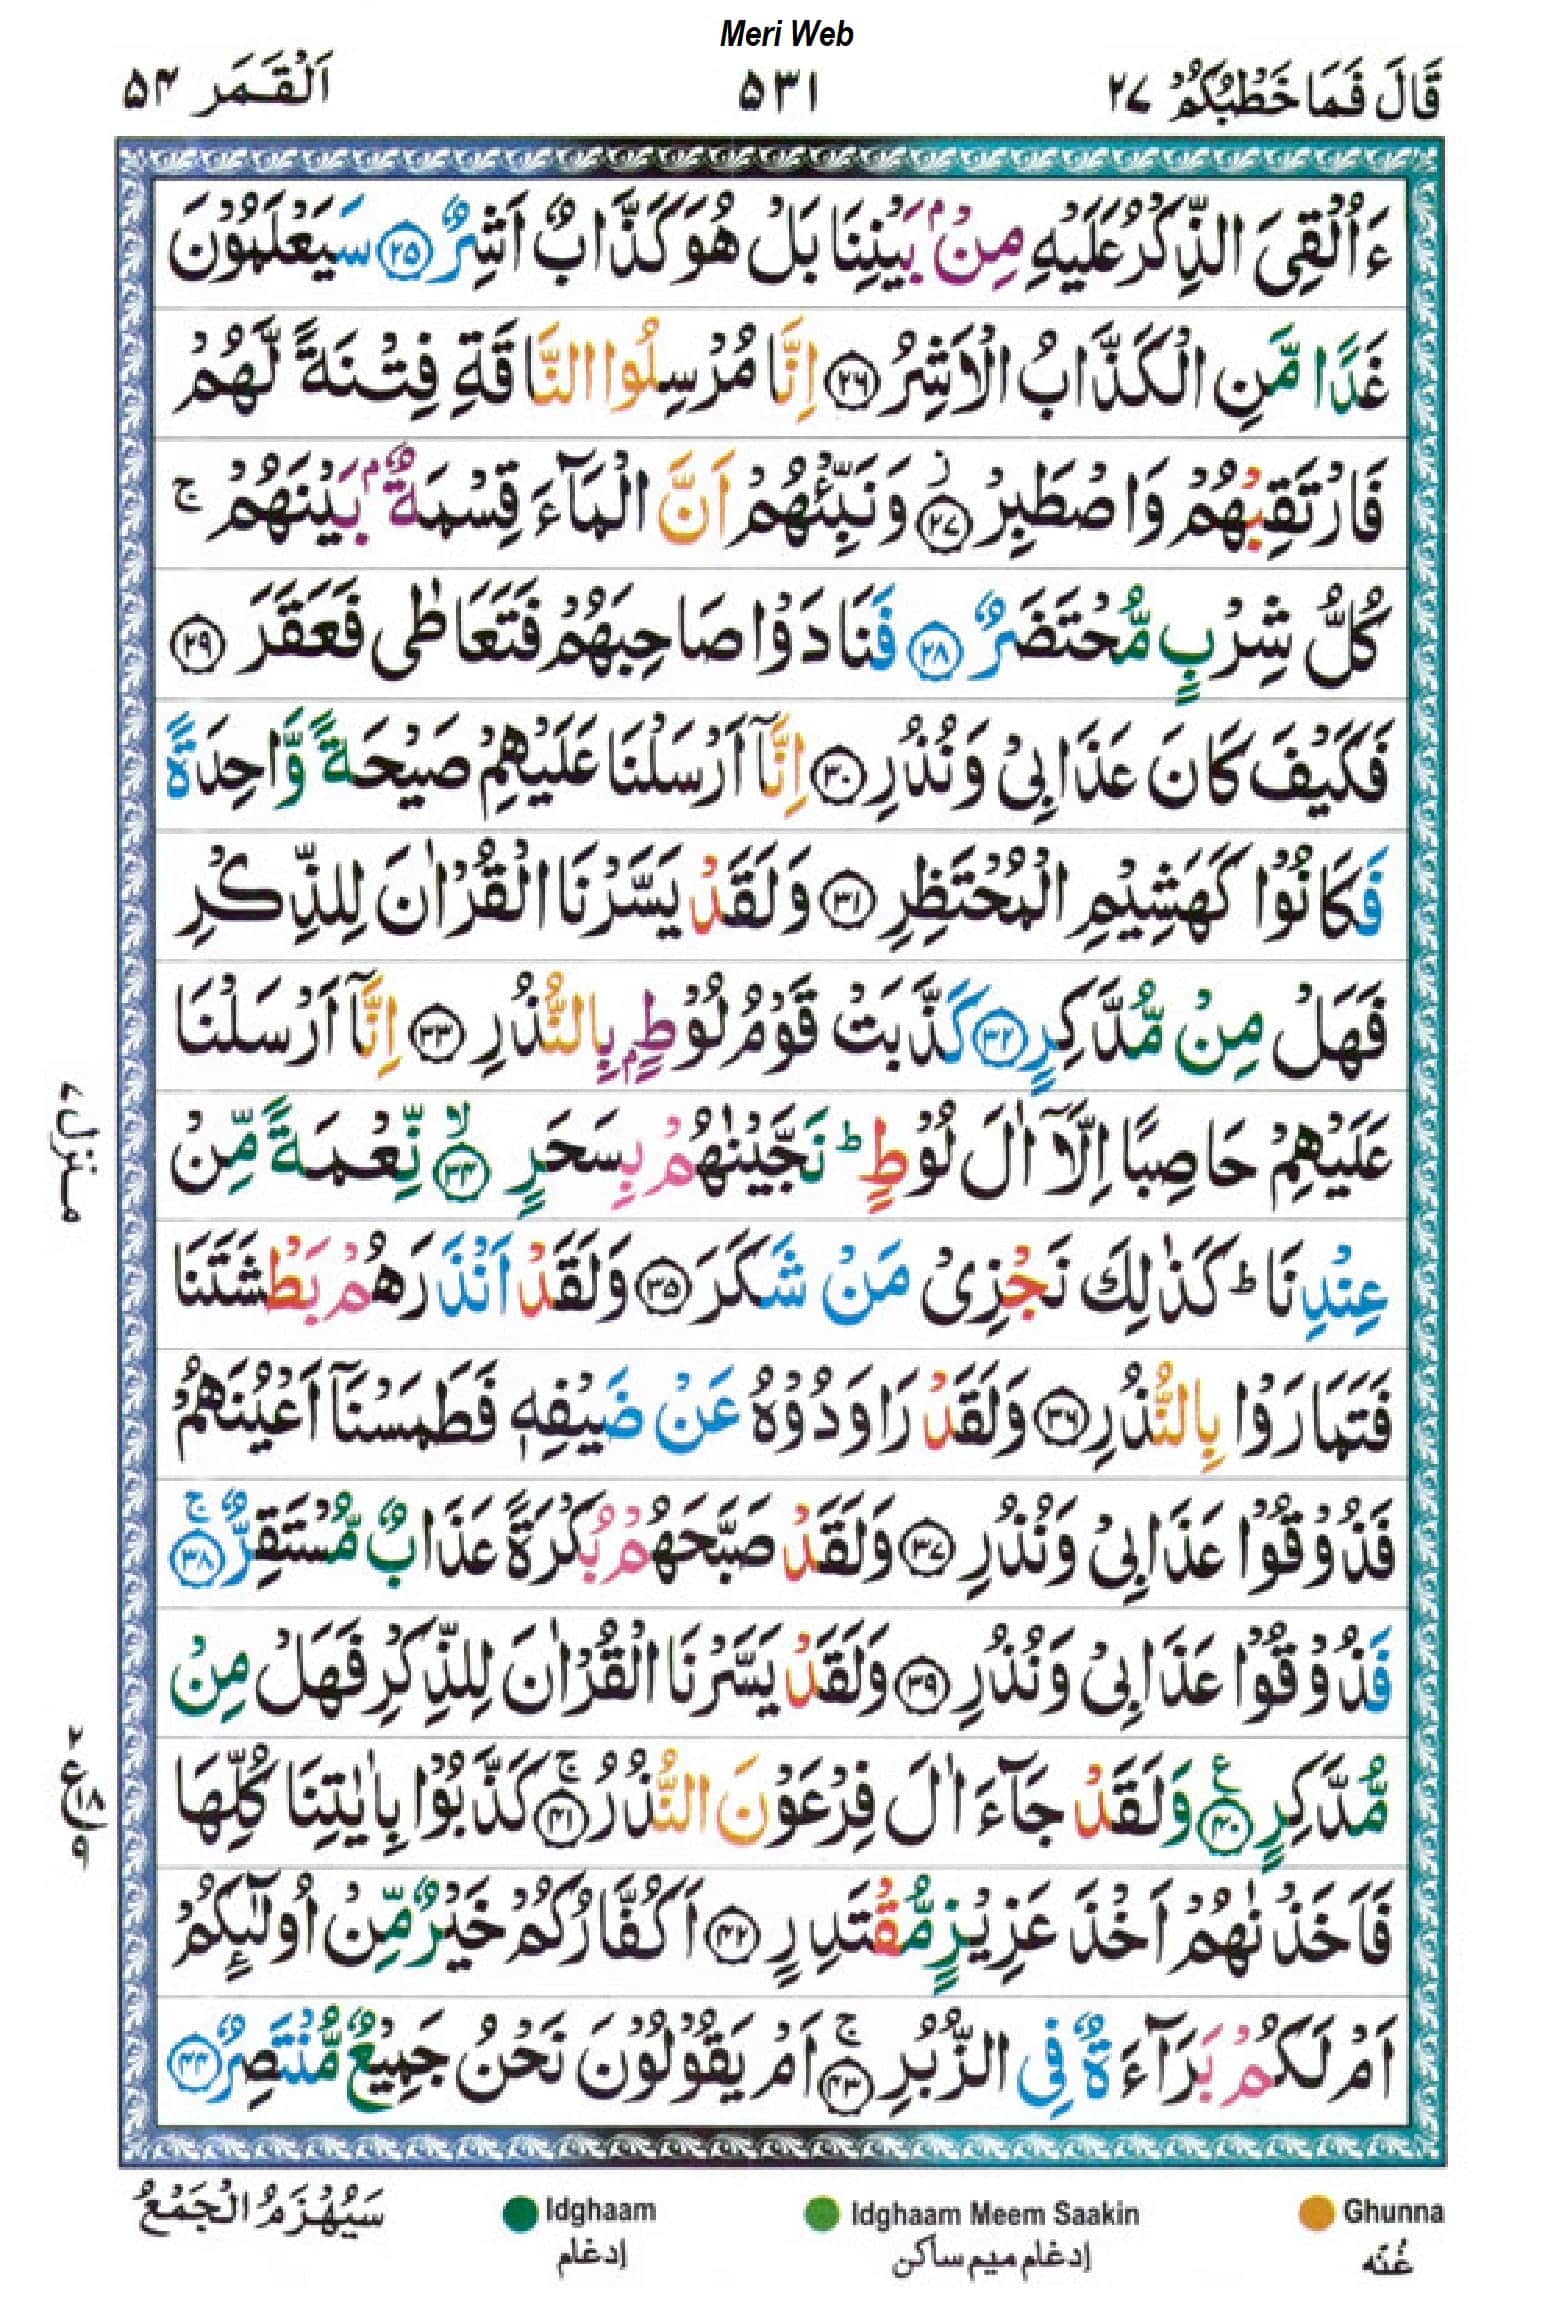 Meri Web
قَالَ فَمَا خَطْبُكُمْ ۲۷
۵۳۱
اَلْقَمَر ۵۴
ءَاُلْقِیَ الذِّكْرُ عَلَیْهِ مِنْۢ بَیْنِنَا بَلْ هُوَ كَذَّابٌ اَشِرٌ ۲۵ سَیَعْلَمُوْنَ
غَدًا مَّنِ الْكَذَّابُ الْاَشِرُ ۲۶ اِنَّا مُرْسِلُوا النَّاقَةِ فِتْنَةً لَّهُمْ
فَارْتَقِبْهُمْ وَاصْطَبِرْ ز ۲۷ وَنَبِّئْهُمْ اَنَّ الْمَآءَ قِسْمَةٌۢ بَیْنَهُمْ ۚ
كُلُّ شِرْبٍ مُّحْتَضَرٌ ۲۸ فَنَادَوْا صَاحِبَهُمْ فَتَعَاطٰی فَعَقَرَ ۲۹
فَكَیْفَ كَانَ عَذَابِیْ وَنُذُرِ ۳۰ اِنَّاۤ اَرْسَلْنَا عَلَیْهِمْ صَیْحَةً وَّاحِدَةً
فَكَانُوْا كَهَشِیْمِ الْمُحْتَظِرِ ۳۱ وَلَقَدْ یَسَّرْنَا الْقُرْاٰنَ لِلذِّكْرِ
فَهَلْ مِنْ مُّدَّكِرٍ ۳۲ كَذَّبَتْ قَوْمُ لُوْطٍۭ بِالنُّذُرِ ۳۳ اِنَّاۤ اَرْسَلْنَا
عَلَیْهِمْ حَاصِبًا اِلَّاۤ اٰلَ لُوْطٍ ؕ نَجَّیْنٰهُمْ بِسَحَرٍ ۙ ۳۴ نِّعْمَةً مِّنْ
عِنْدِنَا ؕ كَذٰلِكَ نَجْزِیْ مَنْ شَكَرَ ۳۵ وَلَقَدْ اَنْذَرَهُمْ بَطْشَتَنَا
فَتَمَارَوْا بِالنُّذُرِ ۳۶ وَلَقَدْ رَاوَدُوْهُ عَنْ ضَیْفِهٖ فَطَمَسْنَاۤ اَعْیُنَهُمْ
فَذُوْقُوْا عَذَابِیْ وَنُذُرِ ۳۷ وَلَقَدْ صَبَّحَهُمْ بُكْرَةً عَذَابٌ مُّسْتَقِرٌّ ۚ ۳۸
فَذُوْقُوْا عَذَابِیْ وَنُذُرِ ۳۹ وَلَقَدْ یَسَّرْنَا الْقُرْاٰنَ لِلذِّكْرِ فَهَلْ مِنْ
مُّدَّكِرٍ ع ۴۰ وَلَقَدْ جَآءَ اٰلَ فِرْعَوْنَ النُّذُرُ ۚ ۴۱ كَذَّبُوْا بِاٰیٰتِنَا كُلِّهَا
فَاَخَذْنٰهُمْ اَخْذَ عَزِیْزٍ مُّقْتَدِرٍ ۴۲ اَكُفَّارُكُمْ خَیْرٌ مِّنْ اُولٰٓئِكُمْ
اَمْ لَكُمْ بَرَآءَةٌ فِی الزُّبُرِ ۚ ۴۳ اَمْ یَقُوْلُوْنَ نَحْنُ جَمِیْعٌ مُّنْتَصِرٌ ۴۴
منزل ۷
ع ۲ ۱۸ ۹
سَیُهْزَمُ الْجَمْعُ
Idghaam
إدغام
Idghaam Meem Saakin
إدغام میم ساکن
Ghunna
غُنّه